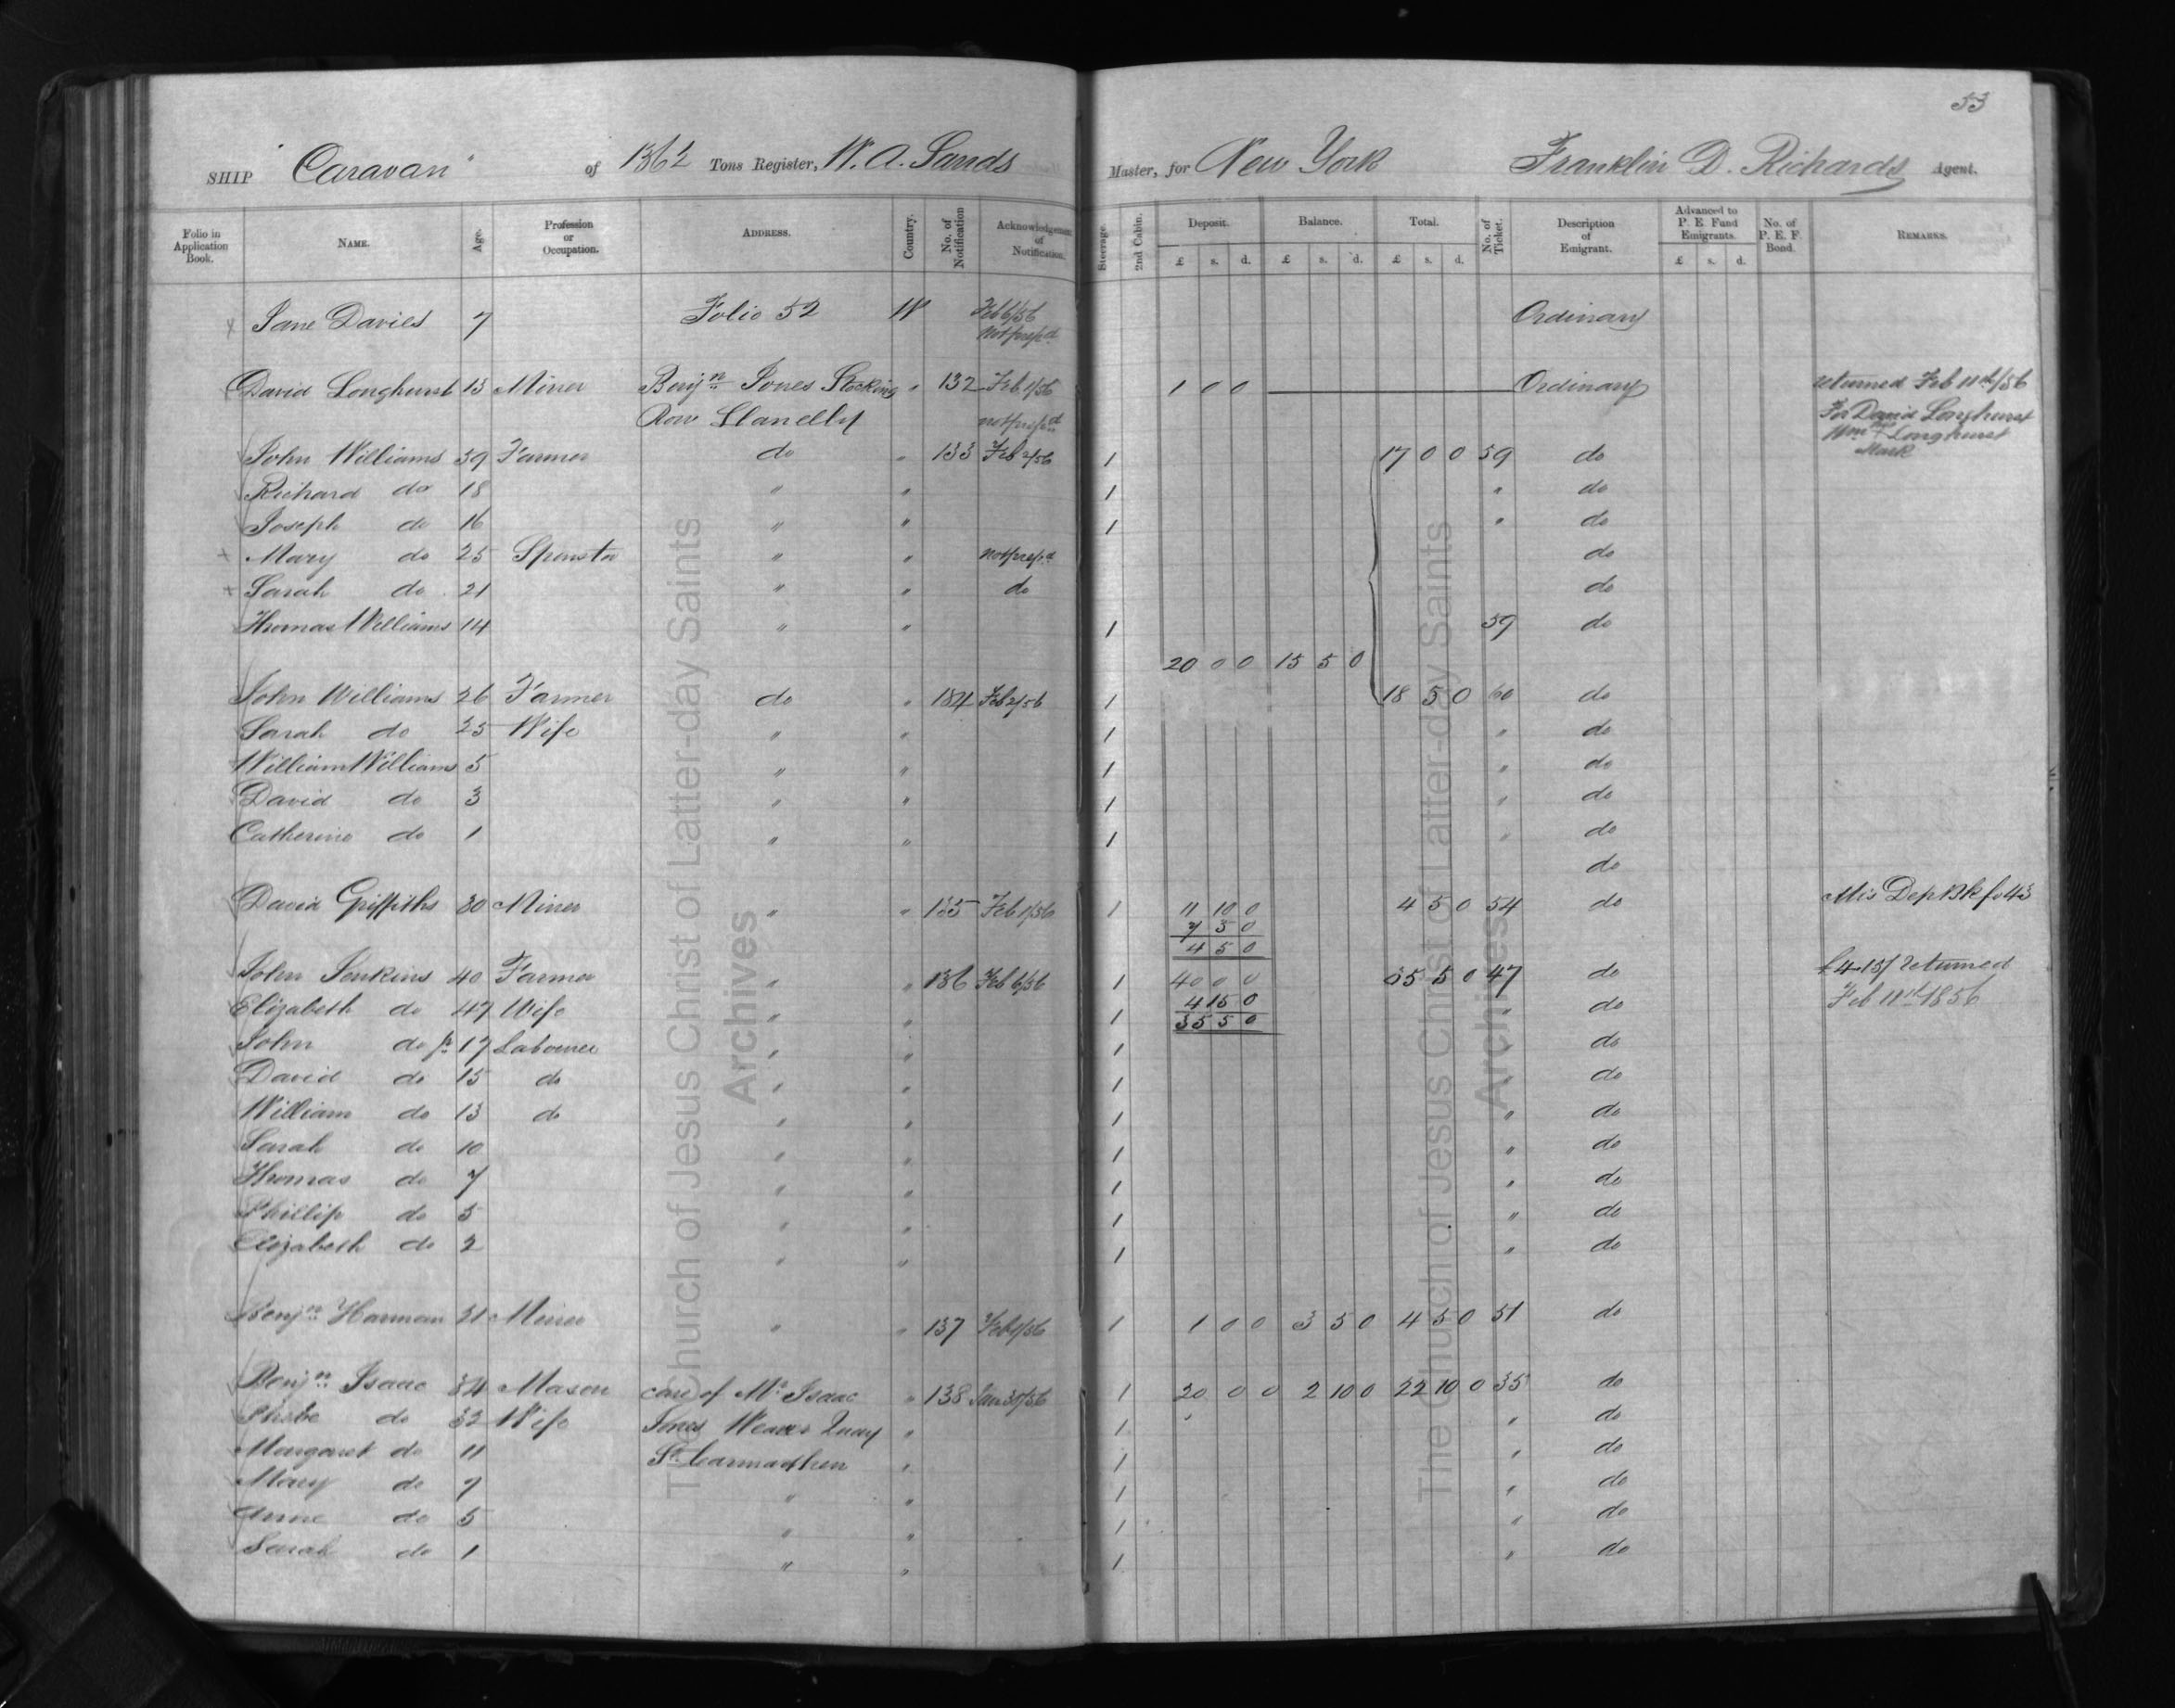 53
SHIP "Caravan" of 1362 Tons Register, W. A. Sands Master, for New York Franklin D. Richards Agent.
Folio in Application Book. NAME. Age. Profession or Occupation. ADDRESS. Country. No. of Notification Acknowledgement of Notification. Steerage. 2nd Cabin. Deposit. £ s. d. Balance. £ s. d. Total. £ s. d. No. of Ticket. Description of Emigrant. Advanced to P. E. Fund Emigrants. £ s. d. No. of P. E. F. Bond. REMARKS.
x Jane Davies 7 Folio 52 W Feb 6/56 Ordinary
Not prepd
David Longhurst 13 Miner Benjn Jones Stocking " 132 Feb 1/56 1 0 0 Ordinary returned Feb 11th/56
Row Llanelly not prepd For David Longhurst
Wm + Longhurst
Mark
John Williams 59 Farmer do " 133 Feb 2/56 1 17 0 0 59 do
Richard do 18 " " 1 " do
Joseph do 16 " " 1 " do
+ Mary do 25 Spinster " " not prepd do
+ Sarah do 21 " " do do
Thomas Williams 14 " " 1 59 do
20 0 0 15 5 0
John Williams 26 Farmer do " 184 Feb 2/56 1 18 5 0 60 do
Sarah do 25 Wife " " 1 " do
William Williams 5 " " 1 " do
David do 3 " " 1 " do
Catherine do 1 " " 1 " do
do
David Griffiths 30 Miner " " 135 Feb 1/56 1 11 10 0 4 5 0 54 do Mis Dep Bk fo 43
7 5 0
4 5 0
John Jenkins 40 Farmer " " 136 Feb 6/56 1 40 0 0 35 5 0 47 do £4.15/ returned
Elizabeth do 47 Wife " " 1 4 15 0 " do Feb 11th 1856
35 5 0
John do jr 17 Labourer " " 1 " do
David do 15 do " " 1 " do
William do 13 do " " 1 " do
Sarah do 10 " " 1 " do
Thomas do 7 " " 1 " do
Phillip do 5 " " 1 " do
Elizabeth do 2 " " 1 " do
Benjn Harman 31 Miner " " 137 1 1 0 0 3 5 0 4 5 0 51 do
Benjn Isaac 34 Mason care of Mr Isaac " 138 Jan 30/56 1 20 0 0 2 10 0 22 10 0 35 do
Phebe do 32 Wife Jones Weaver Quay " 1 " do
Margaret do 11 St Carmarthen " 1 " do
Mary do 7 " " 1 " do
Anne do 5 " " 1 " do
Sarah do 1 " " 1 " do
The Church of Jesus Christ of Latter-day Saints
Archives
The Church of Jesus Christ of Latter-day Saints
Archives